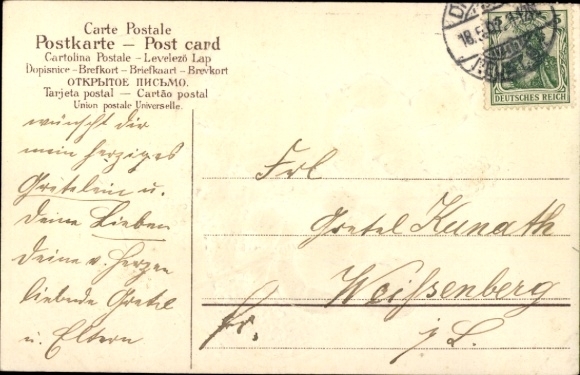 Carte Postale
Postkarte – Post card
Cartolina Postale – Levelező Lap
Dopisnice – Brefkort – Briefkaart – Brevkort
ОТКРЫТОЕ ПИСЬМО.
Tarjeta postal – Cartão postal
Union postale Universelle.
wünscht dir
mein herziges
Gretelein u.
deine Lieben
deine v. Herzen
liebende Gretel
u. Eltern
DEUTSCHES REICH
Frl
Gretel Kunath
Weißenberg
fr.
i. S.